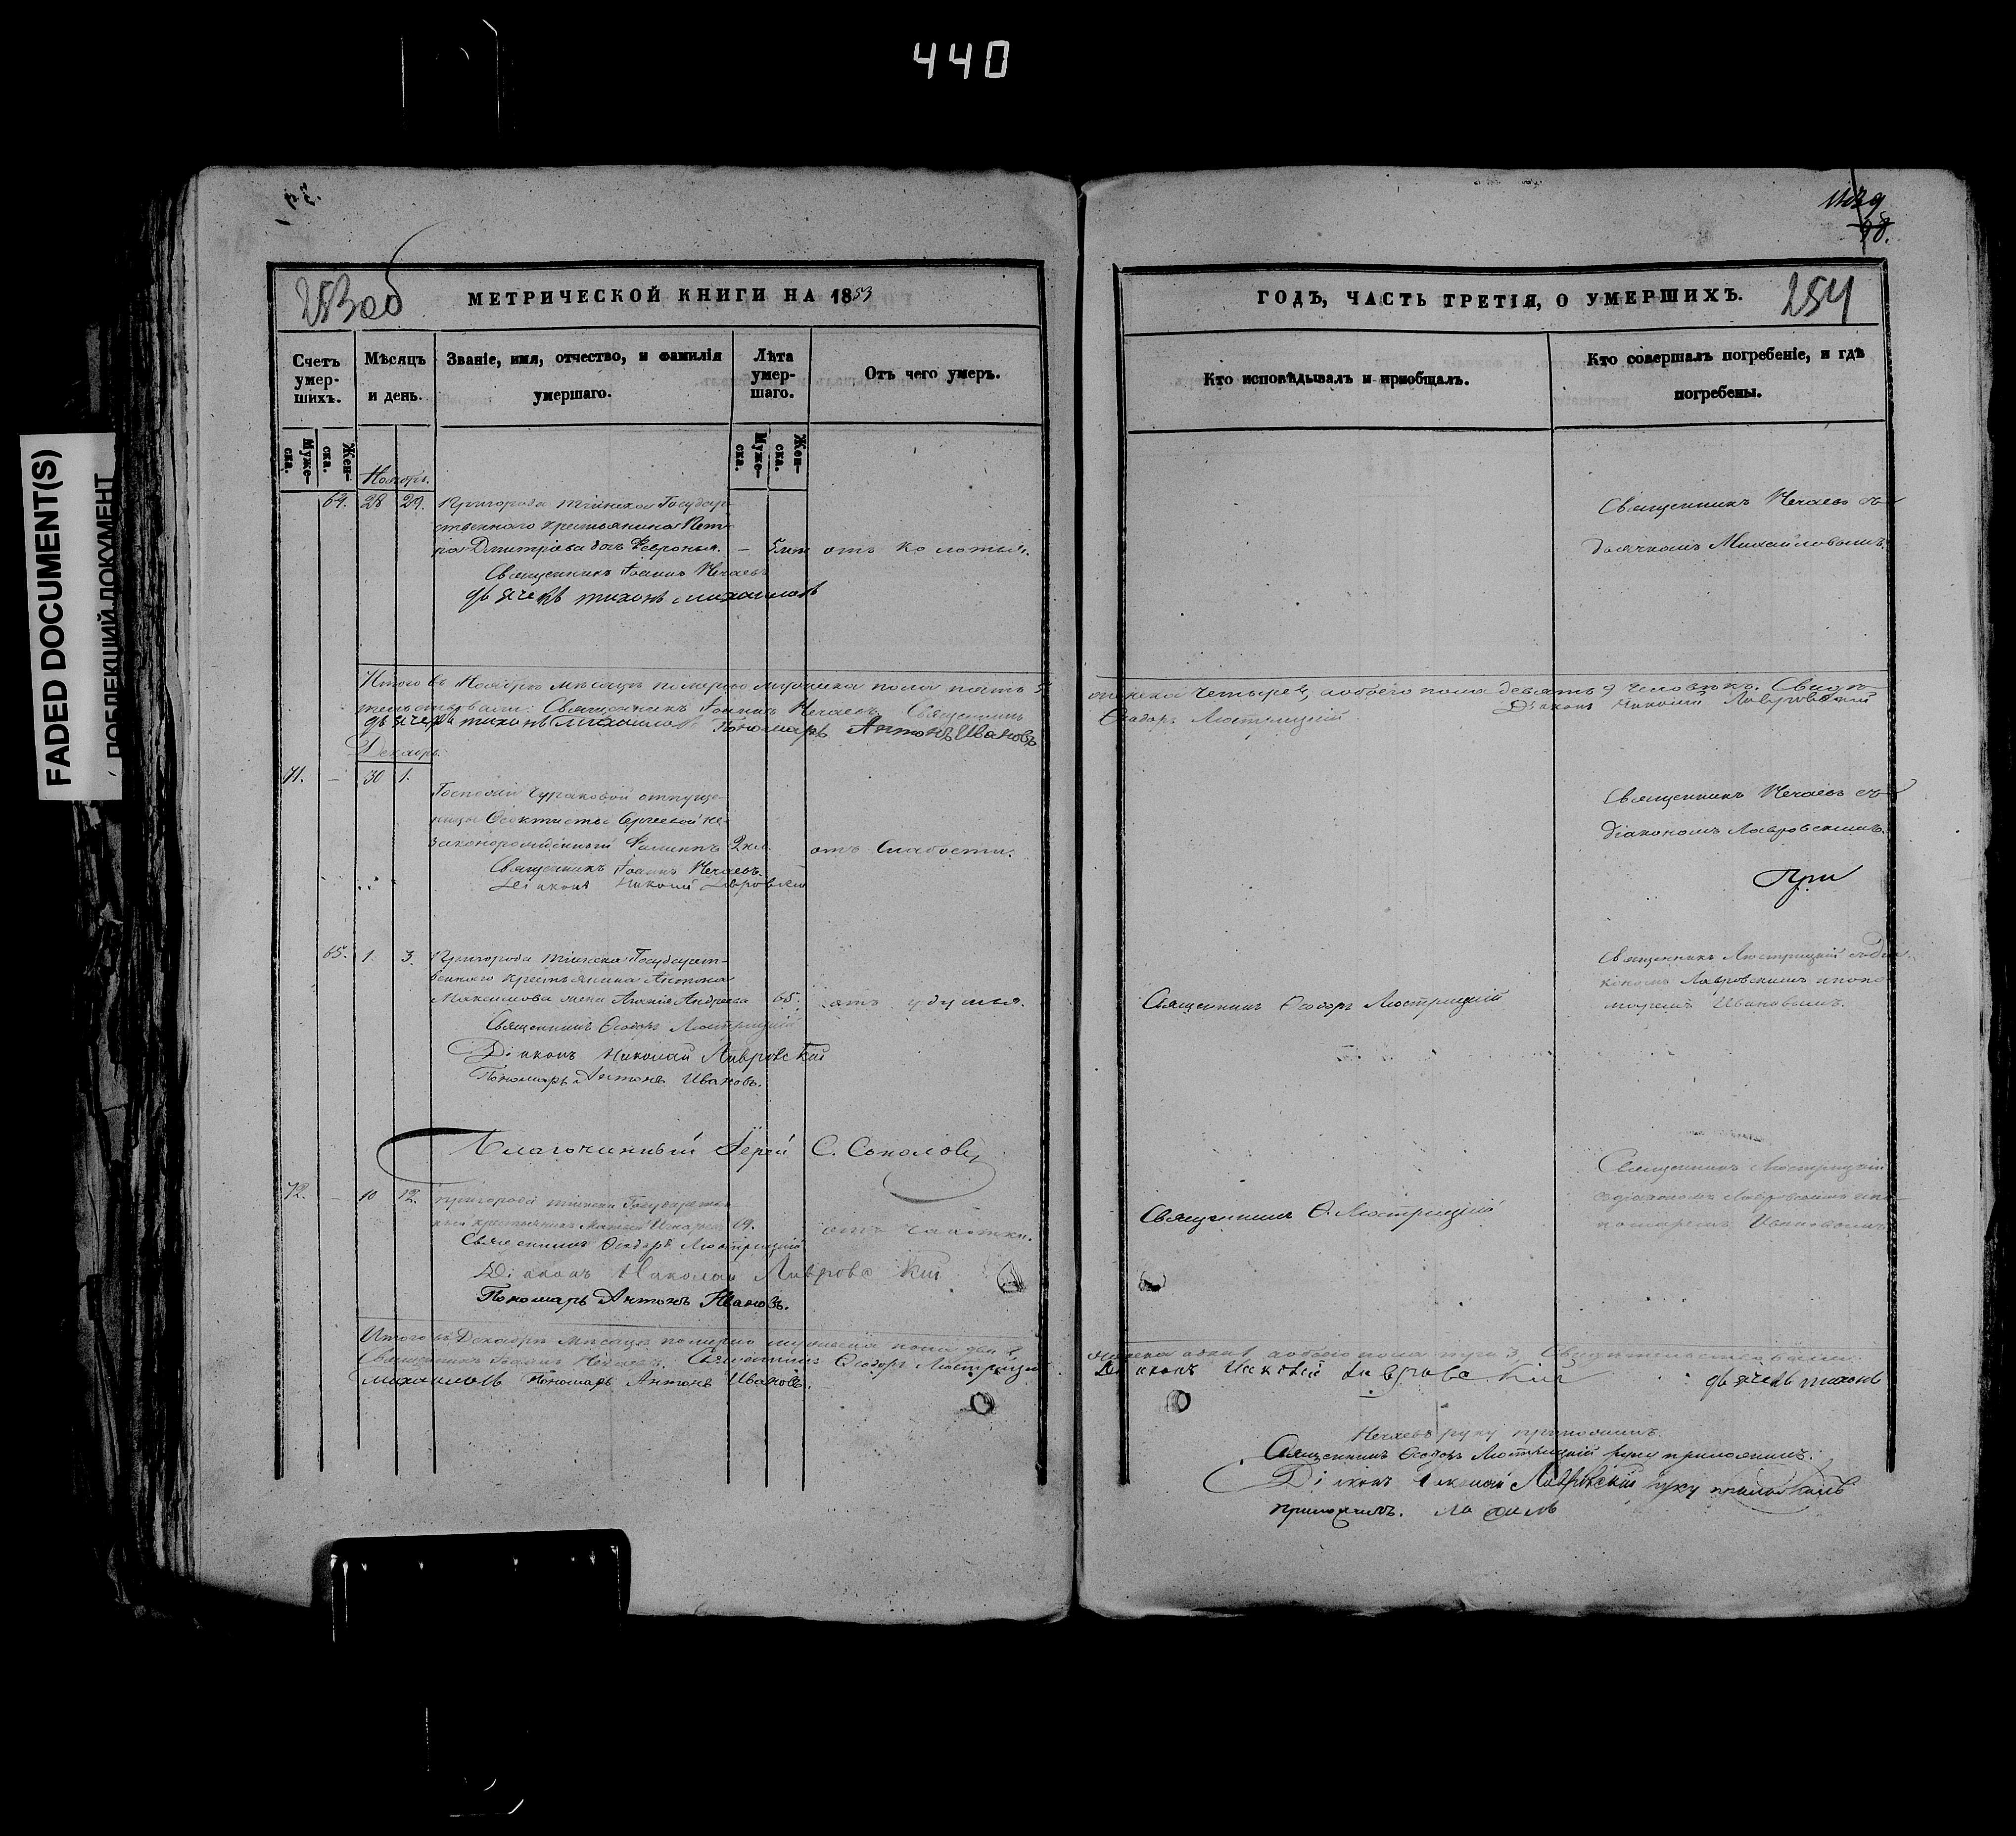 440
FADED DOCUMENT(S)
ПОБЛЕКШИЙ ДОКУМЕНТ
283об
МЕТРИЧЕСКОЙ КНИГИ НА 1853
Счетъ умер-шихъ.
Мѣсяцъ и день.
Званіе, имя, отчество, и фамилія умершаго.
Лѣта умер-шаго.
Отъ чего умеръ.
Муже-ска.
Жен-ска.
Муже-ска.
Жен-ска.
Ноябрь.
64. 28 29. Пригорода Тіинска Государ-
ственнаго крестьянина Пет-
ра Дмитріева дочь Феврония. – 5 лѣт отъ колотья.
Священникъ Іоаннъ Нечаевъ
дьячекъ тихонъ михаиловъ
Итого въ Ноябрѣ мѣсяцѣ померло мужеска пола пять 5
Священникъ Іоаннъ Нечаевъ Священникъ
дьячекъ тихонъ михаиловъ Пономарь Антонъ Ивановъ
Декабрь.
71. – 30 1.
Госпожи отпуще-
ницы Феоктисты Сергеевой не-
законорожденный Филиппъ 2 нед. отъ слабости.
Священникъ Іоаннъ Нечаевъ.
Діаконъ Николай Лавровскій
65. 1. 3. Пригорода Тіинска Государст-
веннаго крестьянина Антона
Максимова жена Андреева 65. отъ удушья.
Священникъ Ѳеодоръ Люстрицкій
Діаконъ Николай Лавровскій
Пономарь Антонъ Ивановъ.
Благочинный Іерей С. Соколовъ
72. – 10 12. Пригорода Тіинска Государствен-
ный крестьянинъ Матвей 69. отъ чахотки.
Священникъ Ѳеодоръ Люстрицкій
Діаконъ Николай Лавровскій
Пономарь Антонъ Ивановъ.
Итого въ Декабрѣ мѣсяцѣ померло мужеска пола два 2
Священникъ Іоаннъ Нечаевъ. Священникъ Ѳеодоръ Люстрицкій
михаиловъ Пономарь Антонъ Ивановъ.
ГОДЪ, ЧАСТЬ ТРЕТІЯ, О УМЕРШИХЪ.
254
Кто исповѣдывалъ и пріобщалъ.
Кто совершалъ погребеніе, и гдѣ погребены.
Священникъ Нечаевъ съ
дьячкомъ Михайловымъ.
женска четыре 4, обоего пола девять 9 человѣкъ. Свидѣ-
Ѳеодоръ Люстрицкій Діаконъ Николай Лавровскій
Священникъ Нечаевъ съ
діакономъ Лавровскимъ.
При
Священникъ Ѳеодоръ Люстрицкій
Священникъ Люстрицкій съ діа-
кономъ Лавровскимъ и поно-
маремъ Ивановымъ.
Священникъ Ѳ. Люстрицкій
Священникъ Люстрицкій
съ діакономъ Лавровскимъ и по-
номаремъ Ивановымъ.
женска одна 1, обоего пола три 3, Свидѣтельствовали:
Діаконъ Николай Лавровскій дьячекъ тихонъ
Нечаевъ руку приложилъ.
Священникъ Ѳеодоръ Люстрицкій руку приложилъ.
Діаконъ Николай Лавровскій руку приложилъ